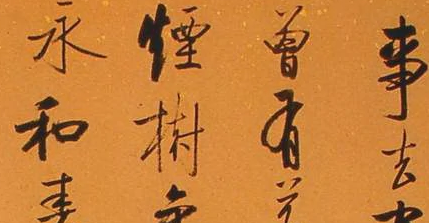 事去
曾有
煙樹
永和春